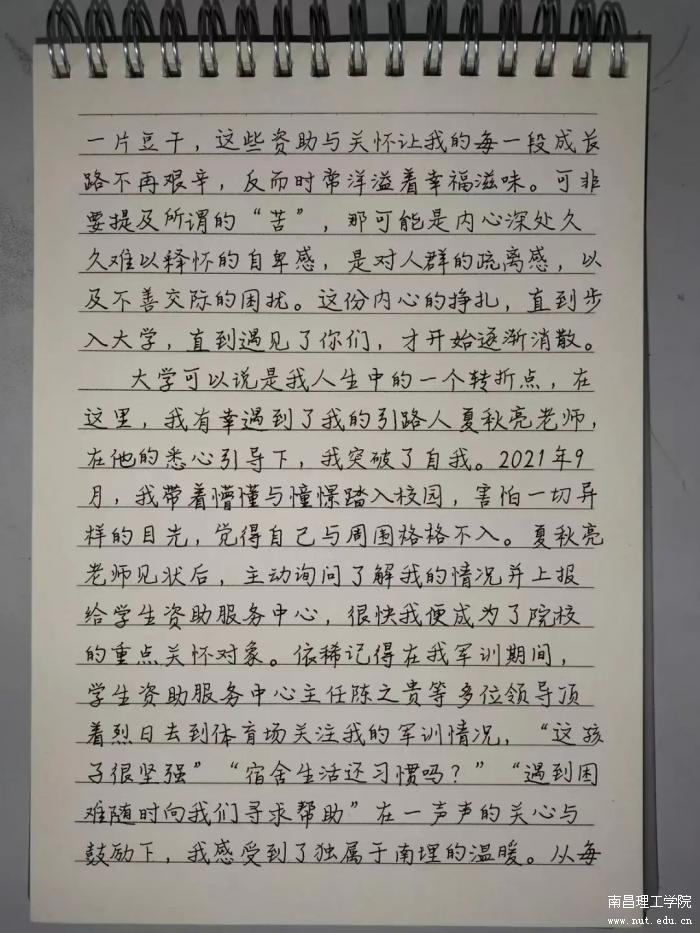 一片豆干，这些资助与关怀让我的每一段成长
路不再艰辛，反而时常洋溢着幸福滋味。可非
要提及所谓的“苦”，那可能是内心深处久
久难以释怀的自卑感，是对人群的疏离感，以
及不善交际的困扰。这份内心的挣扎，直到步
入大学，直到遇见了你们，才开始逐渐消散。
大学可以说是我人生中的一个转折点，在
这里，我有幸遇到了我的引路人夏秋亮老师，
在他的悉心引导下，我突破了自我。2021年9
月，我带着懵懂与憧憬踏入校园，害怕一切异
样的目光，觉得自己与周围格格不入。夏秋亮
老师见状后，主动询问了解我的情况并上报
给学生资助服务中心，很快我便成为了院校
的重点关怀对象。依稀记得在我军训期间，
学生资助服务中心主任陈之贵等多位领导顶
着烈日去到体育场关注我的军训情况，“这孩
子很坚强”“宿舍生活还习惯吗？”“遇到困
难随时向我们寻求帮助”在一声声的关心与
鼓励下，我感受到了独属于南理的温暖。从每
南昌理工学院
www.nut.edu.cn